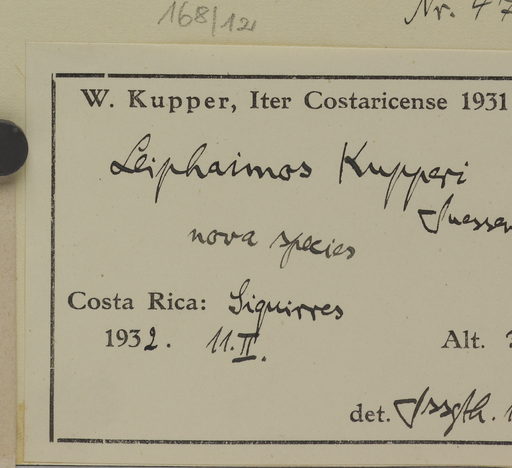 168/12
Nr. 47
W. Kupper, Iter Costaricense 1931
Leiphaimos Kupperi
Suessen
nova species
Costa Rica: Siquirres
1932. 11.II.
Alt.
det. Sssgth.